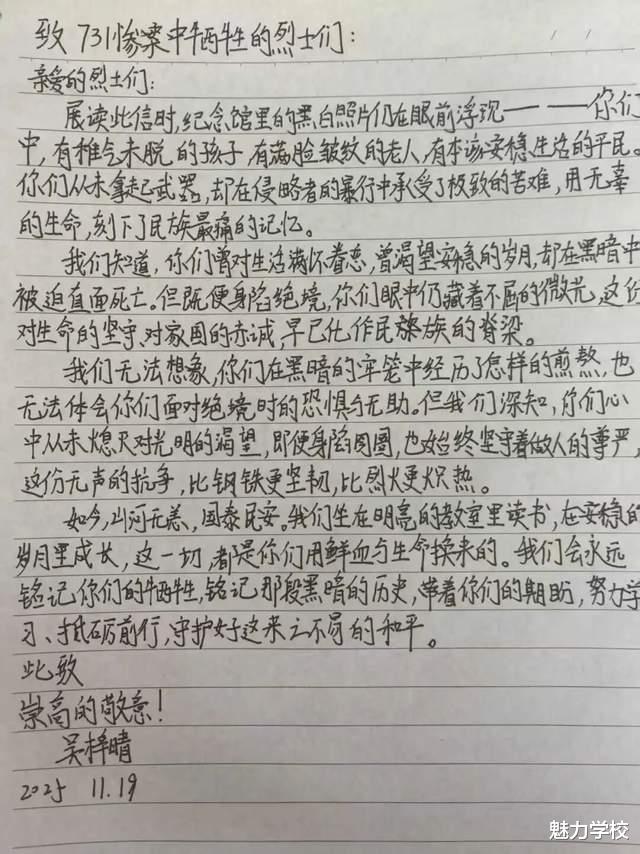 致 731惨案中牺牲的烈士们：
亲爱的烈士们：
展读此信时，纪念馆里的黑白照片仍在眼前浮现——你们
中，有稚气未脱的孩子，有满脸皱纹的老人，有本该安稳生活的平民。
你们从未拿起武器，却在侵略者的暴行中承受了极致的苦难，用无辜
的生命，刻下了民族最痛的记忆。
我们知道，你们曾对生活满怀眷恋，曾渴望安稳的岁月，却在黑暗中
被迫直面死亡。但既便身陷绝境，你们眼中仍藏着不屈的微光，这份
对生命的坚守、对家国的赤诚，早已化作民族的脊梁。
我们无法想象，你们在黑暗的牢笼中经历了怎样的煎熬，也
无法体会你们面对绝境时的恐惧与无助。但我们深知，你们心
中从未熄灭对光明的渴望，即便身陷囹圄，也始终坚守着做人的尊严，
这份无声的抗争，比钢铁更坚韧，比烈火更炽热。
如今，山河无恙，国泰民安。我们坐在明亮的教室里读书，在安稳的
岁月里成长，这一切，都是你们用鲜血与生命换来的。我们会永远
铭记你们的牺牲，铭记那段黑暗的历史，带着你们的期盼，努力学
习、砥砺前行，守护好这来之不易的和平。
此致
崇高的敬意！
吴梓晴
2025 11.19
魅力学校